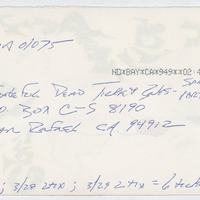 MA 01075
NO★BAY★CA★949★★02:4
Grateful Dead Ticket Sales-
P.O. Box C-S 8190
San Rafael CA 94912
; 3/28 2tix ; 3/29 2tix = 6 tick